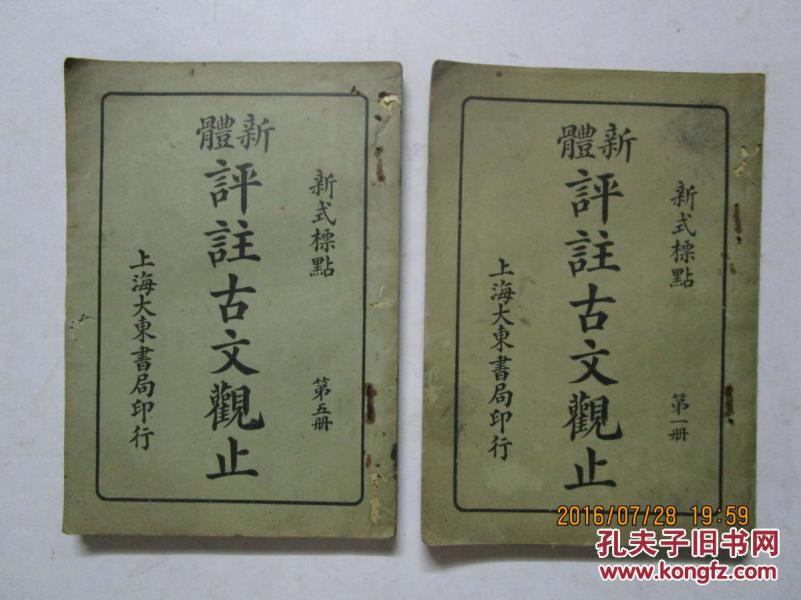 新式標點
第五册
新體
評註古文觀止
上海大東書局印行
新式標點
第一册
新體
評註古文觀止
上海大東書局印行
2016/07/28 19:59
孔夫子旧书网
www.kongfz.com